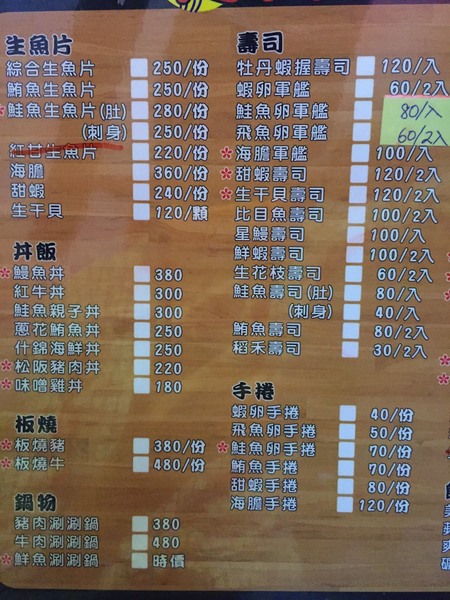 生魚片
綜合生魚片 250/份
鮪魚生魚片 250/份
*鮭魚生魚片(肚) 280/份
(刺身) 250/份
紅甘生魚片 220/份
海膽 360/份
甜蝦 240/份
生干貝 120/顆
丼飯
*鰻魚丼 380
紅牛丼 300
鮭魚親子丼 300
蔥花鮪魚丼 250
什錦海鮮丼 250
*松阪豬肉丼 220
*味噌雞丼 180
板燒
*板燒豬 380/份
*板燒牛 480/份
鍋物
豬肉涮涮鍋 380
牛肉涮涮鍋 480
*鮮魚涮涮鍋 時價
壽司
牡丹蝦握壽司 120/入
蝦卵軍艦 60/2入
鮭魚卵軍艦 80/入
飛魚卵軍艦 60/2入
*海膽軍艦 100/入
*甜蝦壽司 120/2入
*生干貝壽司 120/2入
比目魚壽司 100/2入
星鰻壽司 100/入
鮮蝦壽司 100/2入
生花枝壽司 60/2入
鮭魚壽司(肚) 80/入
(刺身) 40/入
鮪魚壽司 80/2入
稻禾壽司 30/2入
手捲
蝦卵手捲 40/份
飛魚卵手捲 50/份
*鮭魚卵手捲 70/份
鮪魚手捲 70/份
甜蝦手捲 80/份
海膽手捲 120/份